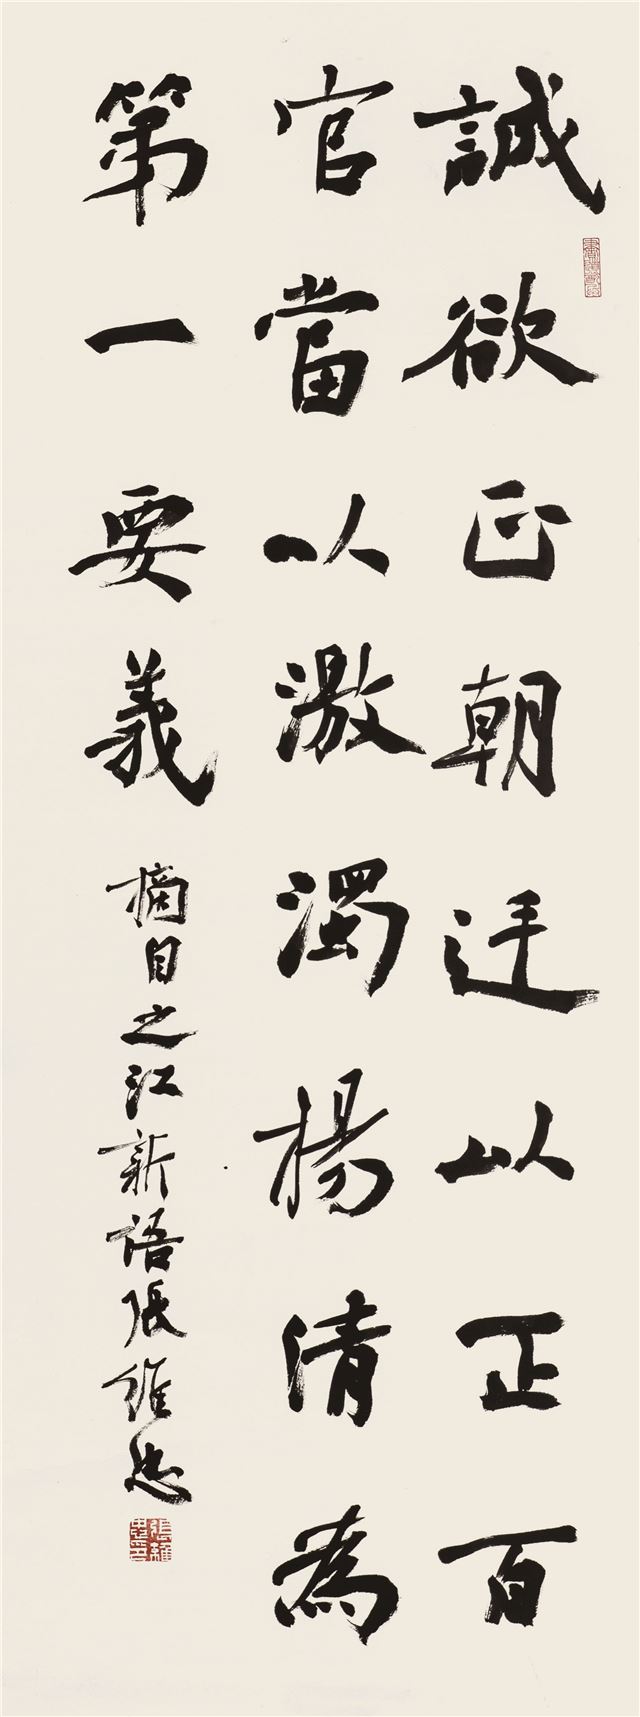 誠欲正朝廷以正百
官當以激濁楊清為
第一要義
摘自之江新語張維忠
張維忠印